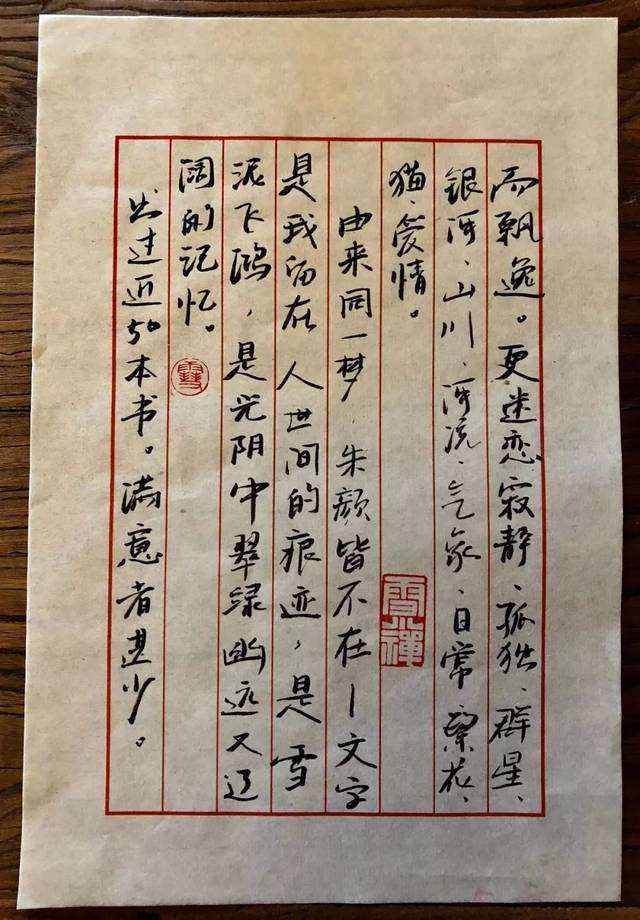 而飘逸。更迷恋寂静、孤独、群星、
银河、山川、河流、气象、日常、繁花、
猫、爱情。
雪禅
由来同一梦，朱颜皆不在—文字
是我留在人世间的痕迹，是雪
泥飞鸿，是光阴中翠绿幽远又辽
阔的记忆。
出过近50本书。满意者甚少。